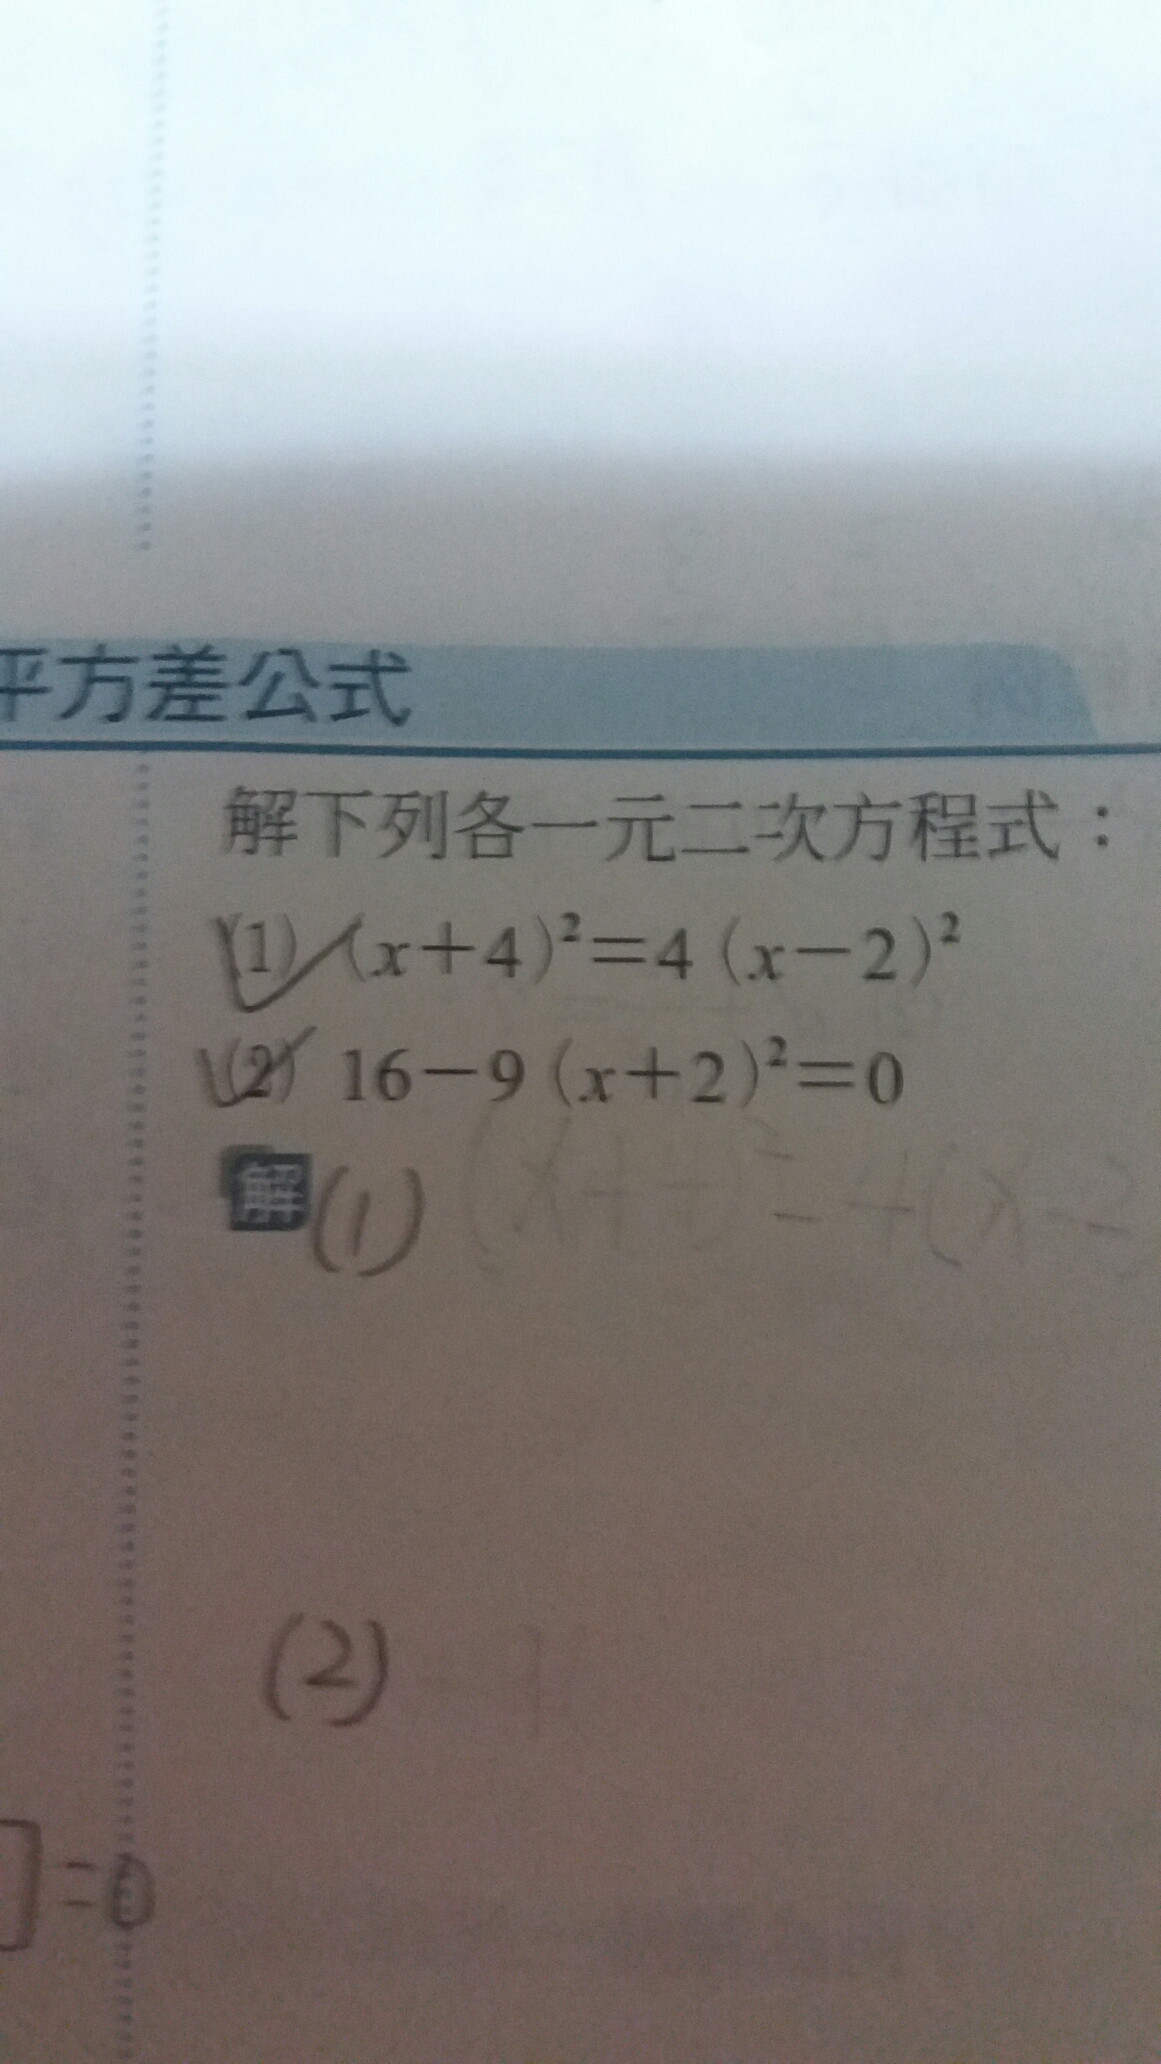 平方差公式
解下列各一元二次方程式：
(1) (x+4)²=4(x−2)²
(2) 16−9(x+2)²=0
解 (1) (x+4)²=4(x-2
(2)
]=0